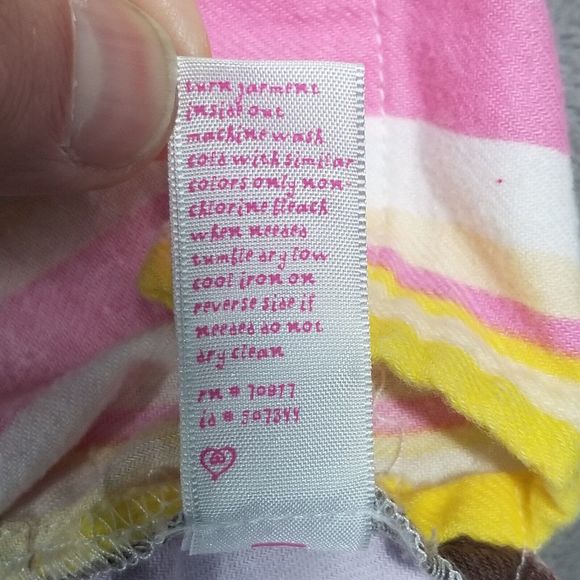 turn garment
inside out
machine wash
cold with similar
colors only non-
chlorine bleach
when needed
tumble dry low
cool iron on
reverse side if
needed do not
dry clean
rn # 70877
id # 507344